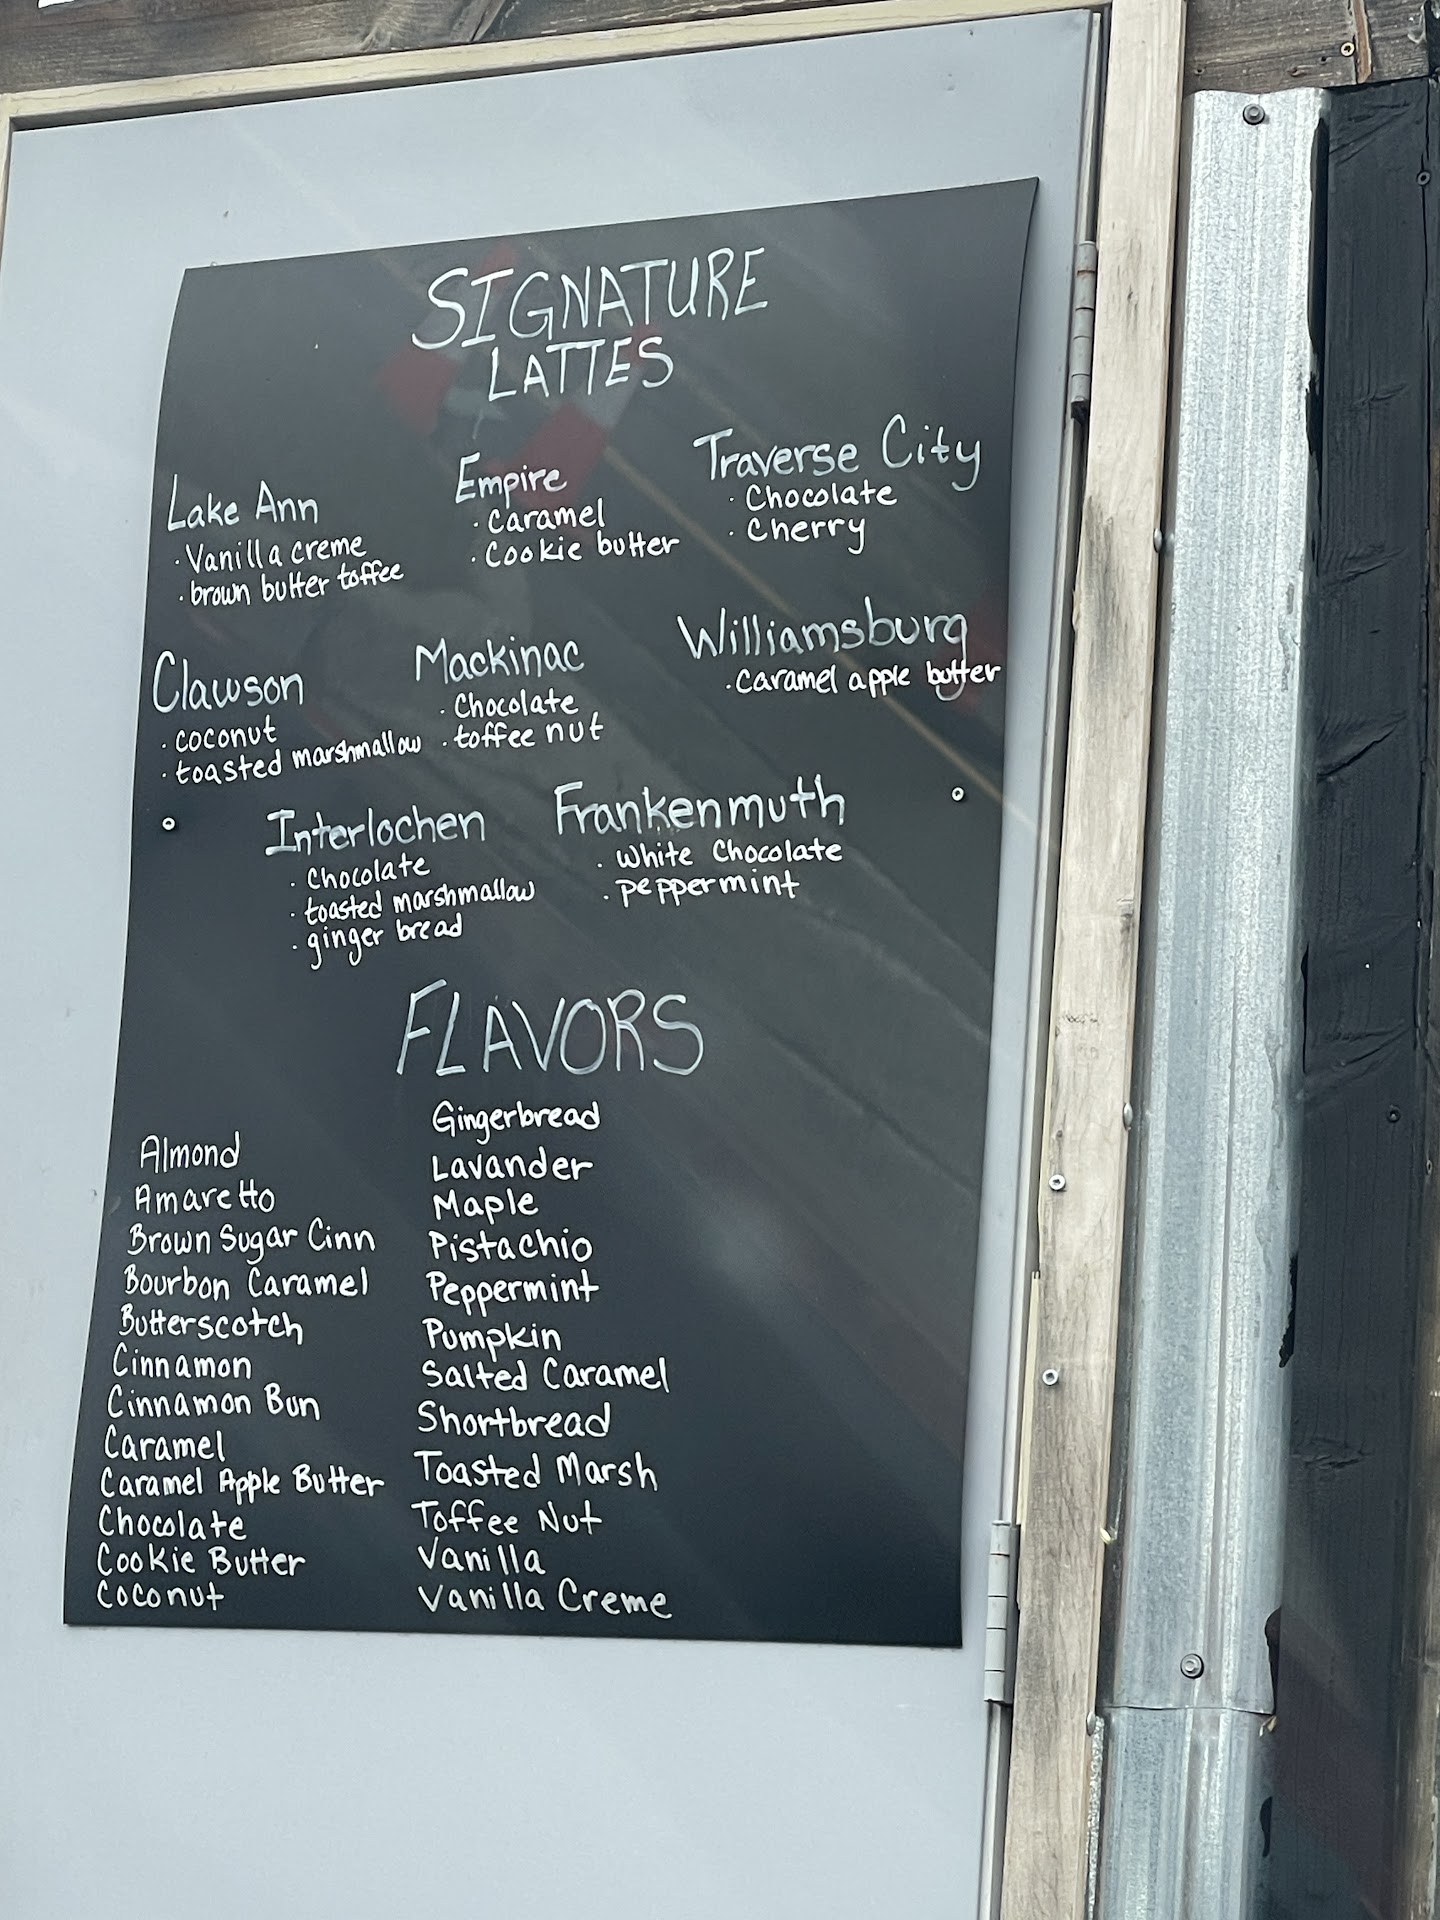 SIGNATURE
LATTES
Lake Ann
· Vanilla creme
· brown butter toffee
Empire
· caramel
· Cookie butter
Traverse City
· Chocolate
· Cherry
Clawson
· coconut
· toasted marshmallow
Mackinac
· Chocolate
· toffee nut
Williamsburg
· caramel apple butter
Interlochen
· Chocolate
· toasted marshmallow
· ginger bread
Frankenmuth
· White Chocolate
· peppermint
FLAVORS
Almond
Amaretto
Brown Sugar Cinn
Bourbon Caramel
Butterscotch
Cinnamon
Cinnamon Bun
Caramel
Caramel Apple Butter
Chocolate
Cookie Butter
Coconut
Gingerbread
Lavander
Maple
Pistachio
Peppermint
Pumpkin
Salted Caramel
Shortbread
Toasted Marsh
Toffee Nut
Vanilla
Vanilla Creme